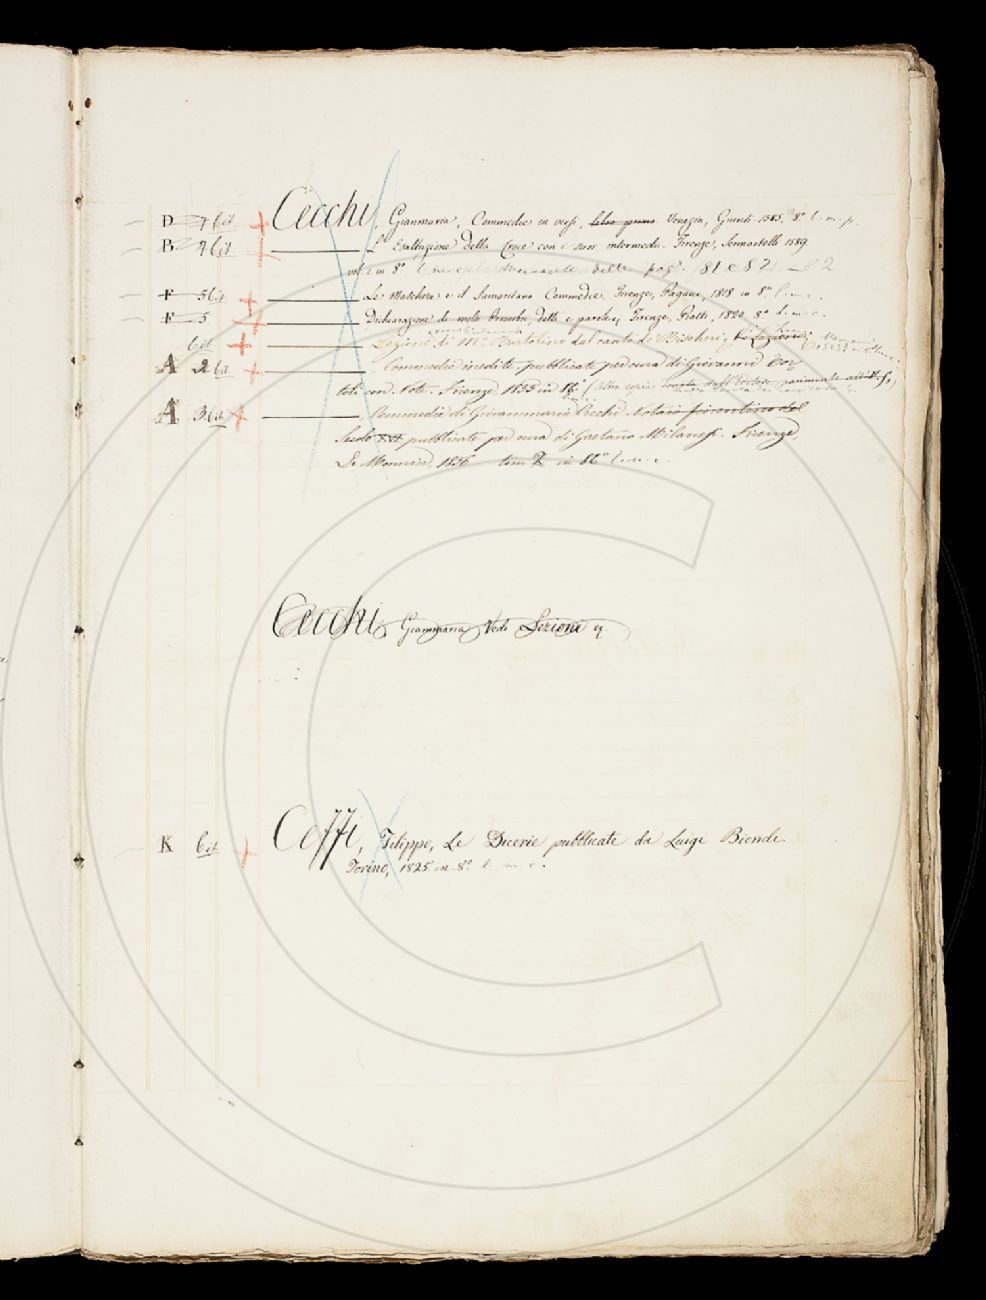 D 4 bit Cecchi, Gianmaria, Commedie in versi, libro primo. Venezia, Giunti 1585, 8.° l. m. p.
B 4 bit L'Esaltazione della Croce con i suoi intermedi. Firenze, Sermartelli 1589
vol 1. in 8.° delle pag. 81 e 82
F 5 bit Le Maschere e il Samaritano Commedie. Firenze, Pagani, 1818 in 8.° l. m. c.
F 5 Dichiarazione di molti Proverbi, detti e parole, Firenze, Piatti, 1820. 8.° l. m. c.
bit Lezione di M.° Bartolino dal canto de' Bischeri,
A 2 bit Commedie inedite, pubblicate per cura di Giovanni Tor
toli con Note. Firenze, 1855 in 16.°
A 3 bit Commedie di Giovanmaria Cecchi Notaio fiorentino del
Secolo XVI pubblicate per cura di Gaetano Milanesi. Firenze,
Le Monnier, 1856 tom 2 in 16.° l. m. c.
Cecchi Gianmaria Vedi Lezione
K 6 bit Ceffi, Filippo, Le Dicerie pubblicate da Luigi Biondi.
Torino, 1825 in 8.° l. m. c.